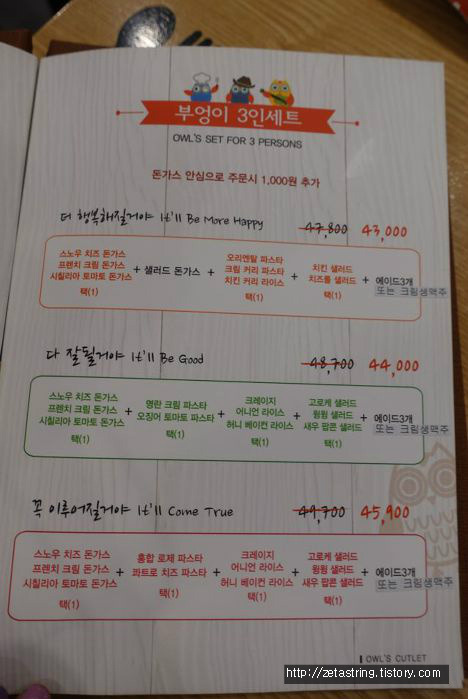 부엉이 3인세트
OWL'S SET FOR 3 PERSONS
돈가스 안심으로 주문시 1,000원 추가
더 행복해질거야 It'll Be More Happy 47,800 43,000
스노우 치즈 돈가스
프렌치 크림 돈가스
시칠리아 토마토 돈가스
택(1)
+ 샐러드 돈가스 +
오리엔탈 파스타
크림 커리 파스타
치킨 커리 라이스
택(1)
+
치킨 샐러드
치즈롤 샐러드
택(1)
+ 에이드3개
또는 크림생맥주
다 잘될거야 It'll Be Good 48,700 44,000
스노우 치즈 돈가스
프렌치 크림 돈가스
시칠리아 토마토 돈가스
택(1)
+
명란 크림 파스타
오징어 토마토 파스타
택(1)
+
크레이지
어니언 라이스
허니 베이컨 라이스
택(1)
+
고로케 샐러드
윙윙 샐러드
새우 팝콘 샐러드
택(1)
+ 에이드3개
또는 크림생맥주
꼭 이루어질거야 It'll Come True 49,700 45,900
스노우 치즈 돈가스
프렌치 크림 돈가스
시칠리아 토마토 돈가스
택(1)
+
홍합 로제 파스타
콰트로 치즈 파스타
택(1)
+
크레이지
어니언 라이스
허니 베이컨 라이스
택(1)
+
고로케 샐러드
윙윙 샐러드
새우 팝콘 샐러드
택(1)
+ 에이드3개
또는 크림생맥주
OWL'S CUTLET
http://zetastring.tistory.com